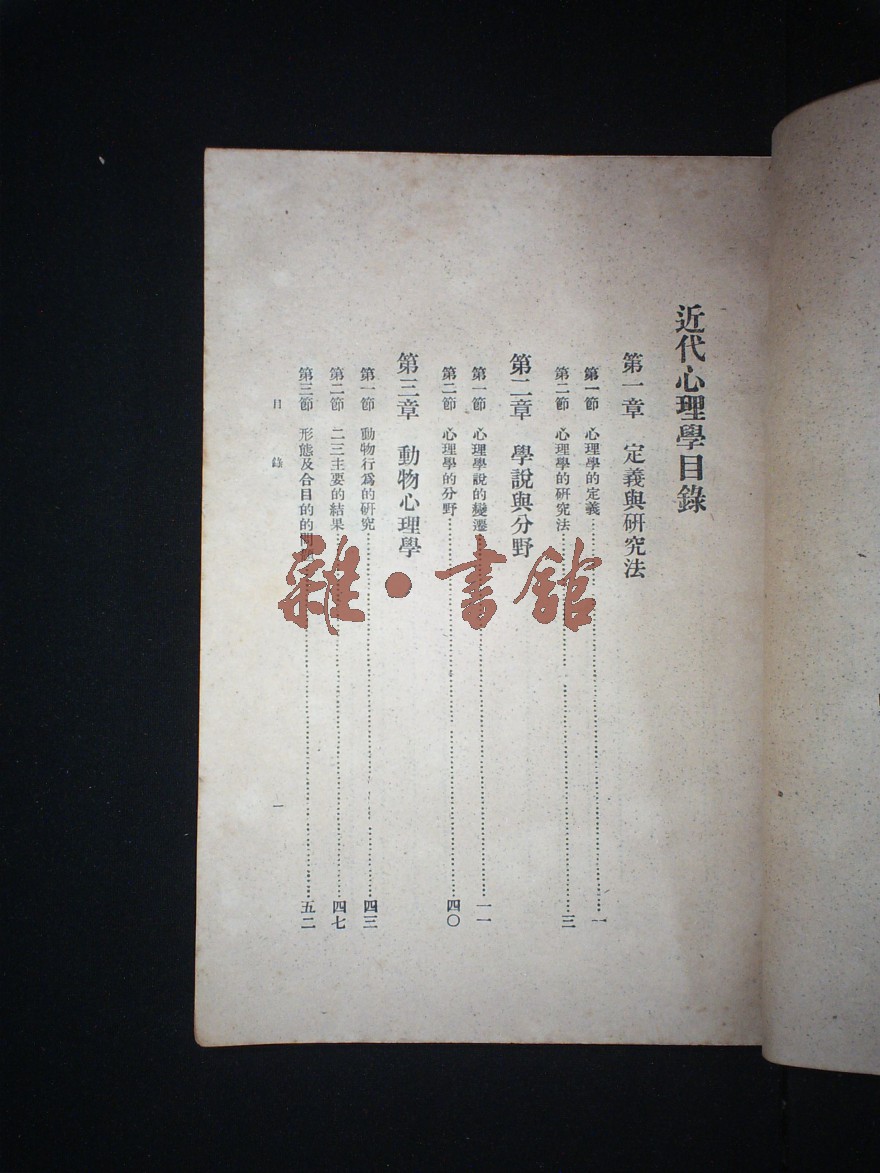 近代心理學目錄
第一章 定義與研究法
第一節 心理學的定義……一
第二節 心理學的研究法……三
第二章 學說與分野
第一節 心理學說的變遷……一一
第二節 心理學的分野……四〇
第三章 動物心理學
第一節 動物行爲的研究……四三
第二節 二三主要的結果……四七
第三節 形態及合目的的……五二
目錄 一
雜・書館